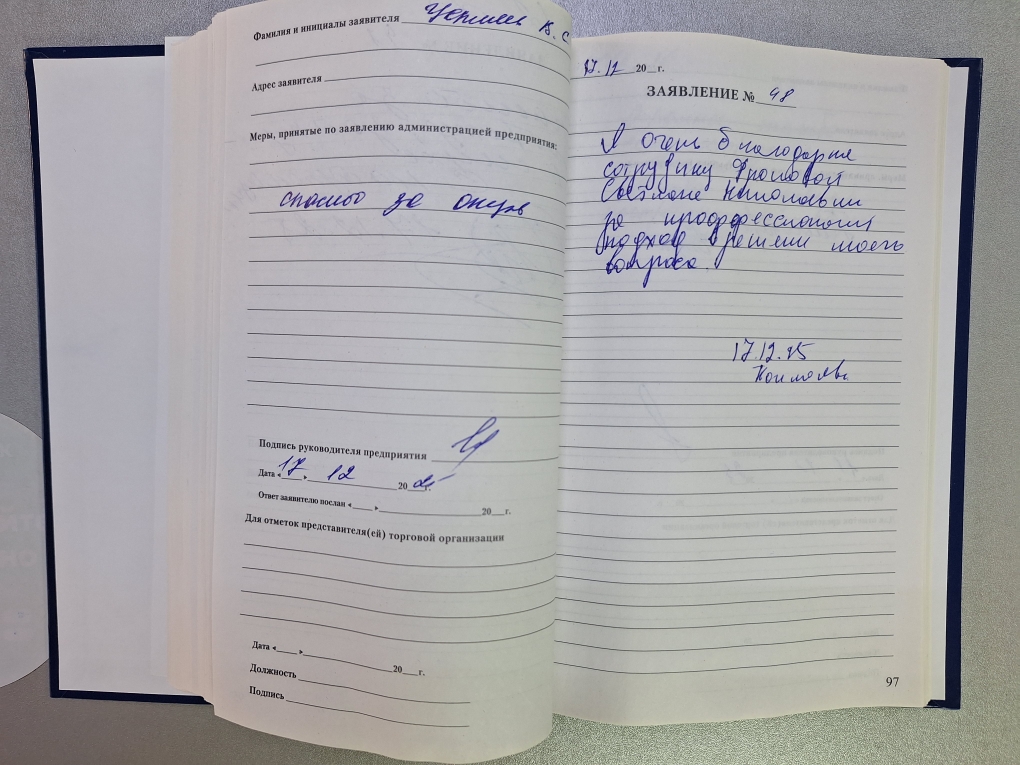 Фамилия и инициалы заявителя В. С
Адрес заявителя
Меры, принятые по заявлению администрацией предприятия:
спасибо за отзыв
Подпись руководителя предприятия
Дата « 17 » 12 20 25 г.
Ответ заявителю послан « » 20 г.
Для отметок представителя(ей) торговой организации
Дата « » 20 г.
Должность
Подпись
17.12 20 г.
ЗАЯВЛЕНИЕ № 48
Я очень благодарна
сотруднику Фроловой
Светлане
за
подход в решении моего
вопроса.
17.12.25
97